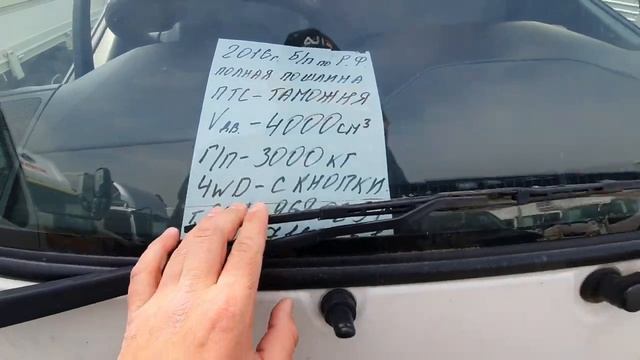 2016г. Б/П по Р.Ф
ПОЛНАЯ ПОШЛИНА
ПТС-ТАМОЖНЯ
Vдв.-4000см³
Г/П-3000кг
4WD-С КНОПКИ